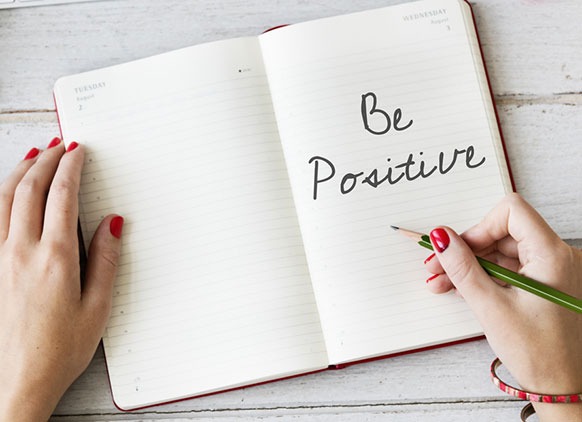 TUESDAY
August
2
WEDNESDAY
August
3
Be
Positive